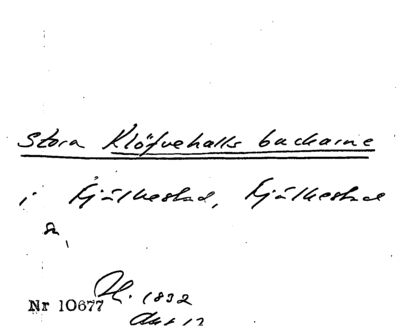 Stora Klöfvehalls backarne
i Fjälkestad, Fjälkestad
sn,
Nr 10677
H. 1832
Akt 12